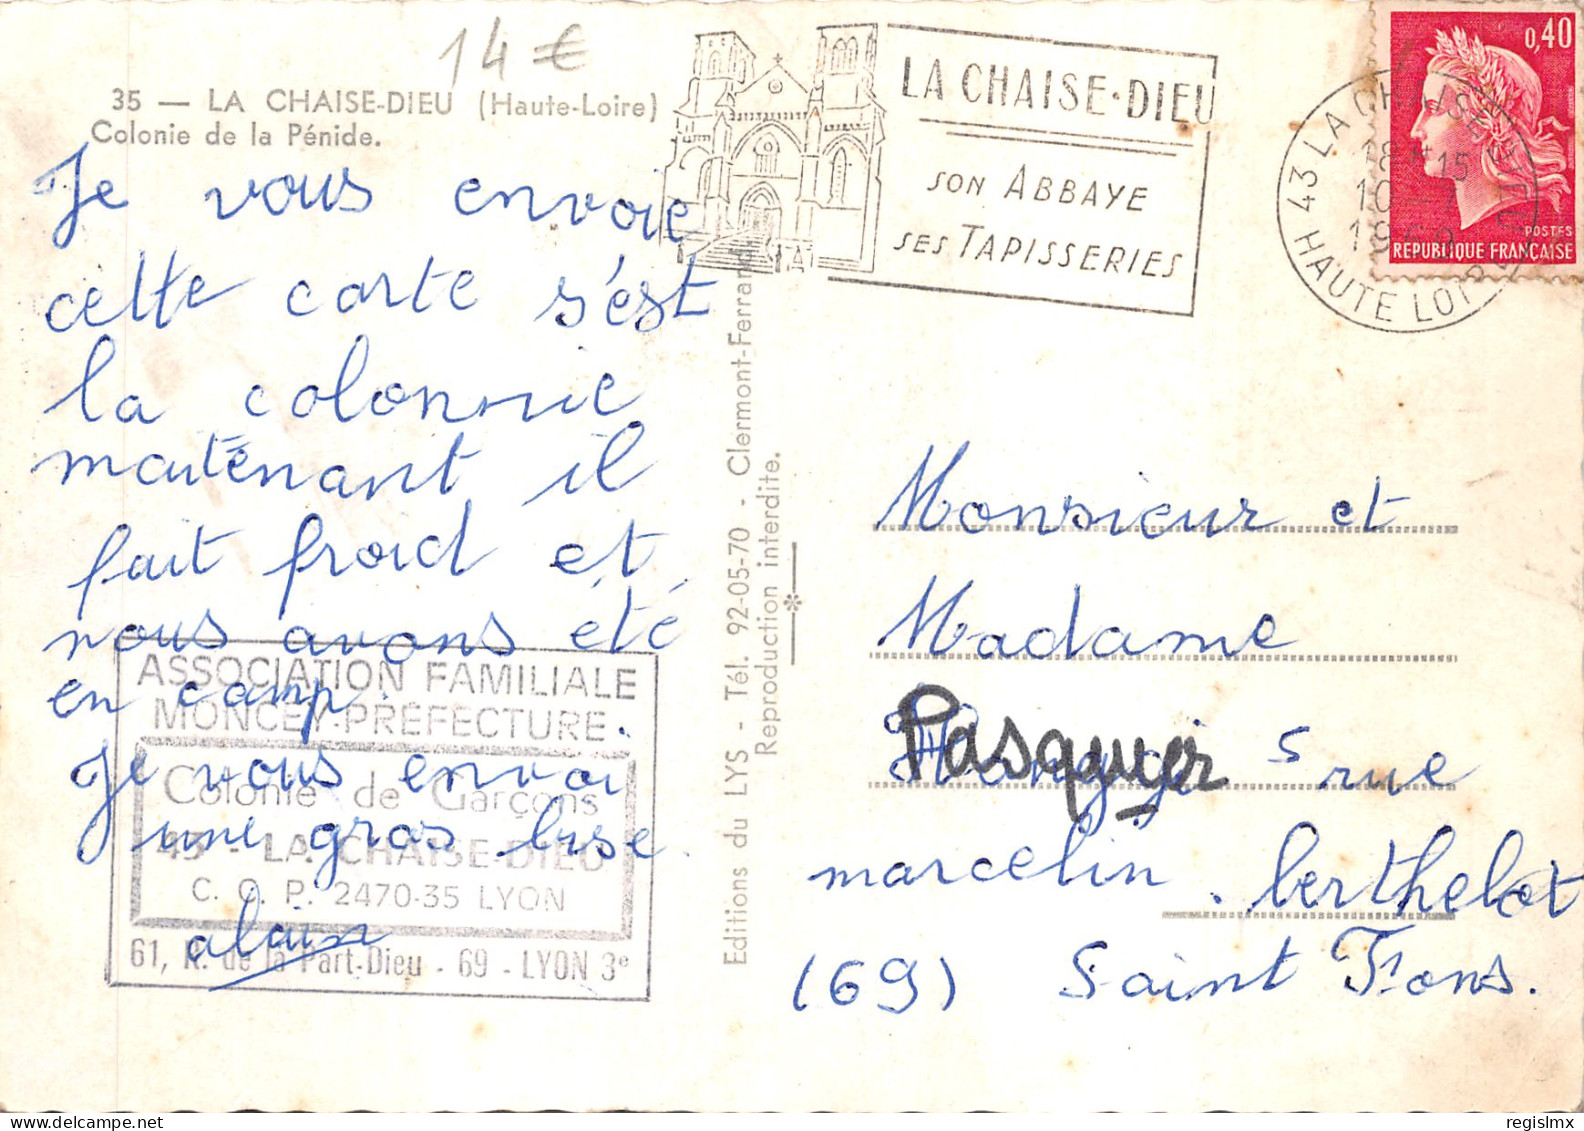 14 €
35 — LA CHAISE-DIEU (Haute-Loire)
Colonie de la Pénide.
Je vous envoie
cette carte s'est
la colonnie
maintenant il
fait froid et
nous avons été
en camp.
Je vous envoi
une gros bise.
alain
ASSOCIATION FAMILIALE
MONCEY-PRÉFECTURE
Colonie de Garçons
43 - LA CHAISE-DIEU
C. C. P. 2470-35 LYON
61, R. de la Part-Dieu - 69 - LYON 3e
Editions du LYS - Tél. 92-05-70 - Clermont-Ferrand
Reproduction interdite.
LA CHAISE-DIEU
SON ABBAYE
SES TAPISSERIES
43 LA CHAISE DIEU
18H15
10-7
1969
HAUTE LOIRE
0,40
POSTES
REPUBLIQUE FRANÇAISE
Monsieur et
Madame
Pasquier 5 rue
marcelin berthelot
(69) Saint Fons.
regislmx